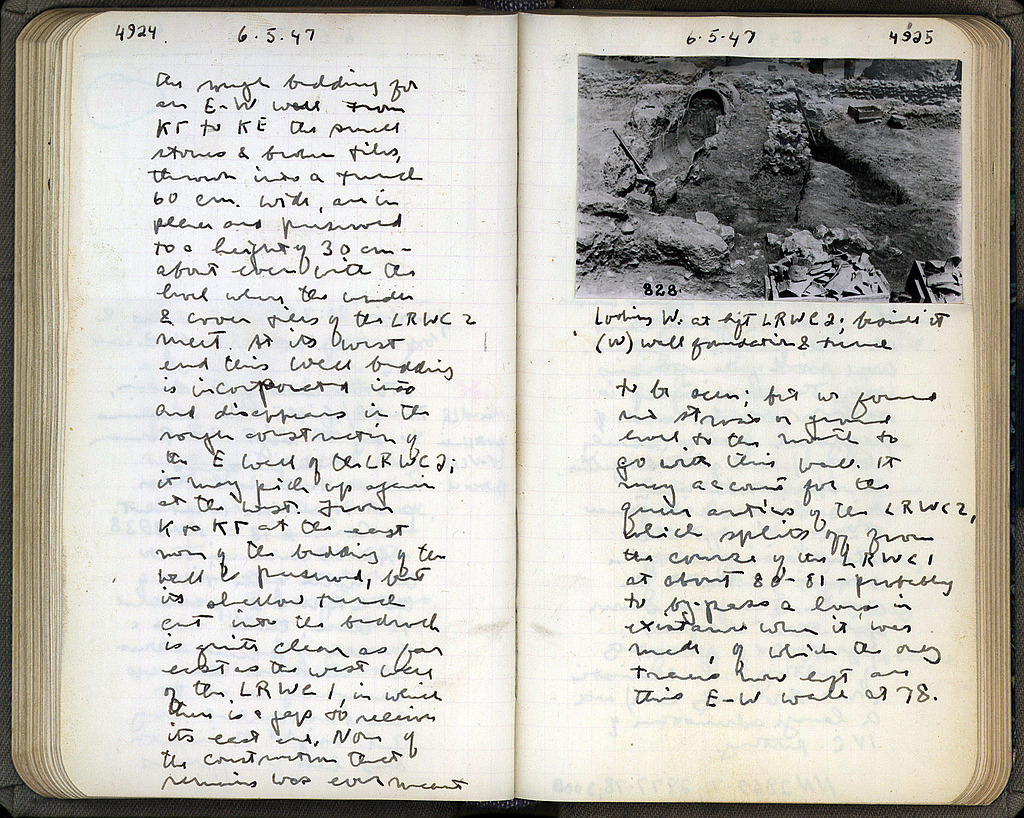 4924 6.5.47
the rough bedding for
an E-W wall from
KΓ to KE the small
stones & broken tiles,
thrown into a trench
60 cm. wide, are in
place and preserved
to a height of 30 cm -
about even with the
level where the under
& cover tiles of the LRWC 2
meet. At its west
end this wall bedding
is incorporated into
and disappears in the
rough construction of
the E wall of the LRWC 2;
it may pick up again
at the west. From
K to KΓ at the east
none of the bedding of the
wall is preserved, but
its shallow trench
cut into the bedrock
is quite clear as far
east as the west wall
of the LRWC 1, in which
there is a gap to receive
its east end. None of
the construction that
remains was ever meant
6.5.47 4925
828
Looking W. at left LRWC 2; beside it
(W) wall foundation & trench
to be seen; but we found
no stroses or ground
level to the north to
go with this wall. It
may account for the
queer antics of the LRWC 2,
which splits off from
the course of the LRWC 1
at about 80-81 - probably
to by-pass a house in
existence when it was
made, of which the only
traces now left are
this E-W wall at 78.